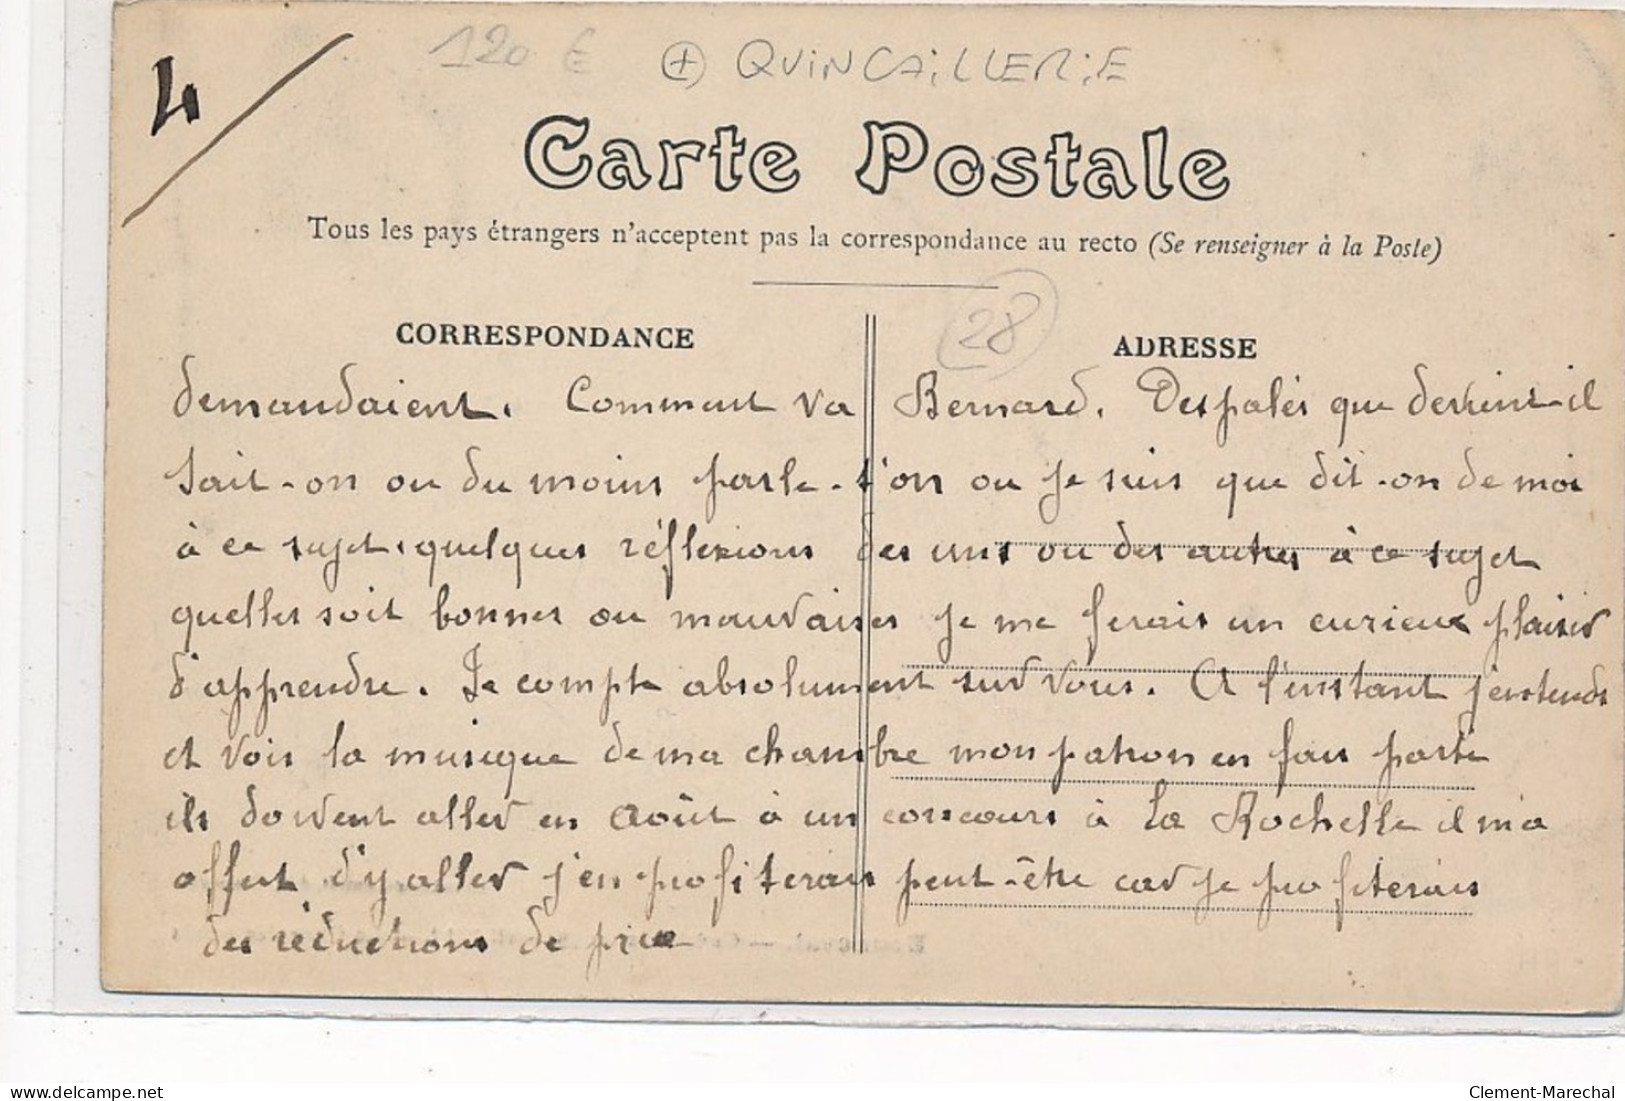 4
120 € + QUINCAILLERIE
Carte Postale
Tous les pays étrangers n'acceptent pas la correspondance au recto (Se renseigner à la Poste)
28
CORRESPONDANCE ADRESSE
demandaient. Comment va Bernard. Despalés que devient-il
sait-on ou du moins parle-t'on ou je suis que dit-on de moi
à ce sujet, quelques réflexions des uns ou des autres à ce sujet
quelles soit bonnes ou mauvaises je me ferais un curieux plaisir
d'apprendre. Je compte absolument sur vous. A l'instant j'entends
et vois la musique de ma chambre mon patron en fais partie
ils doivent aller en Août à un concours à La Rochelle il m'a
offert d'y aller j'en profiterais peut-être car je profiterais
des réductions de prix
Clement-Marechal
www.delcampe.net